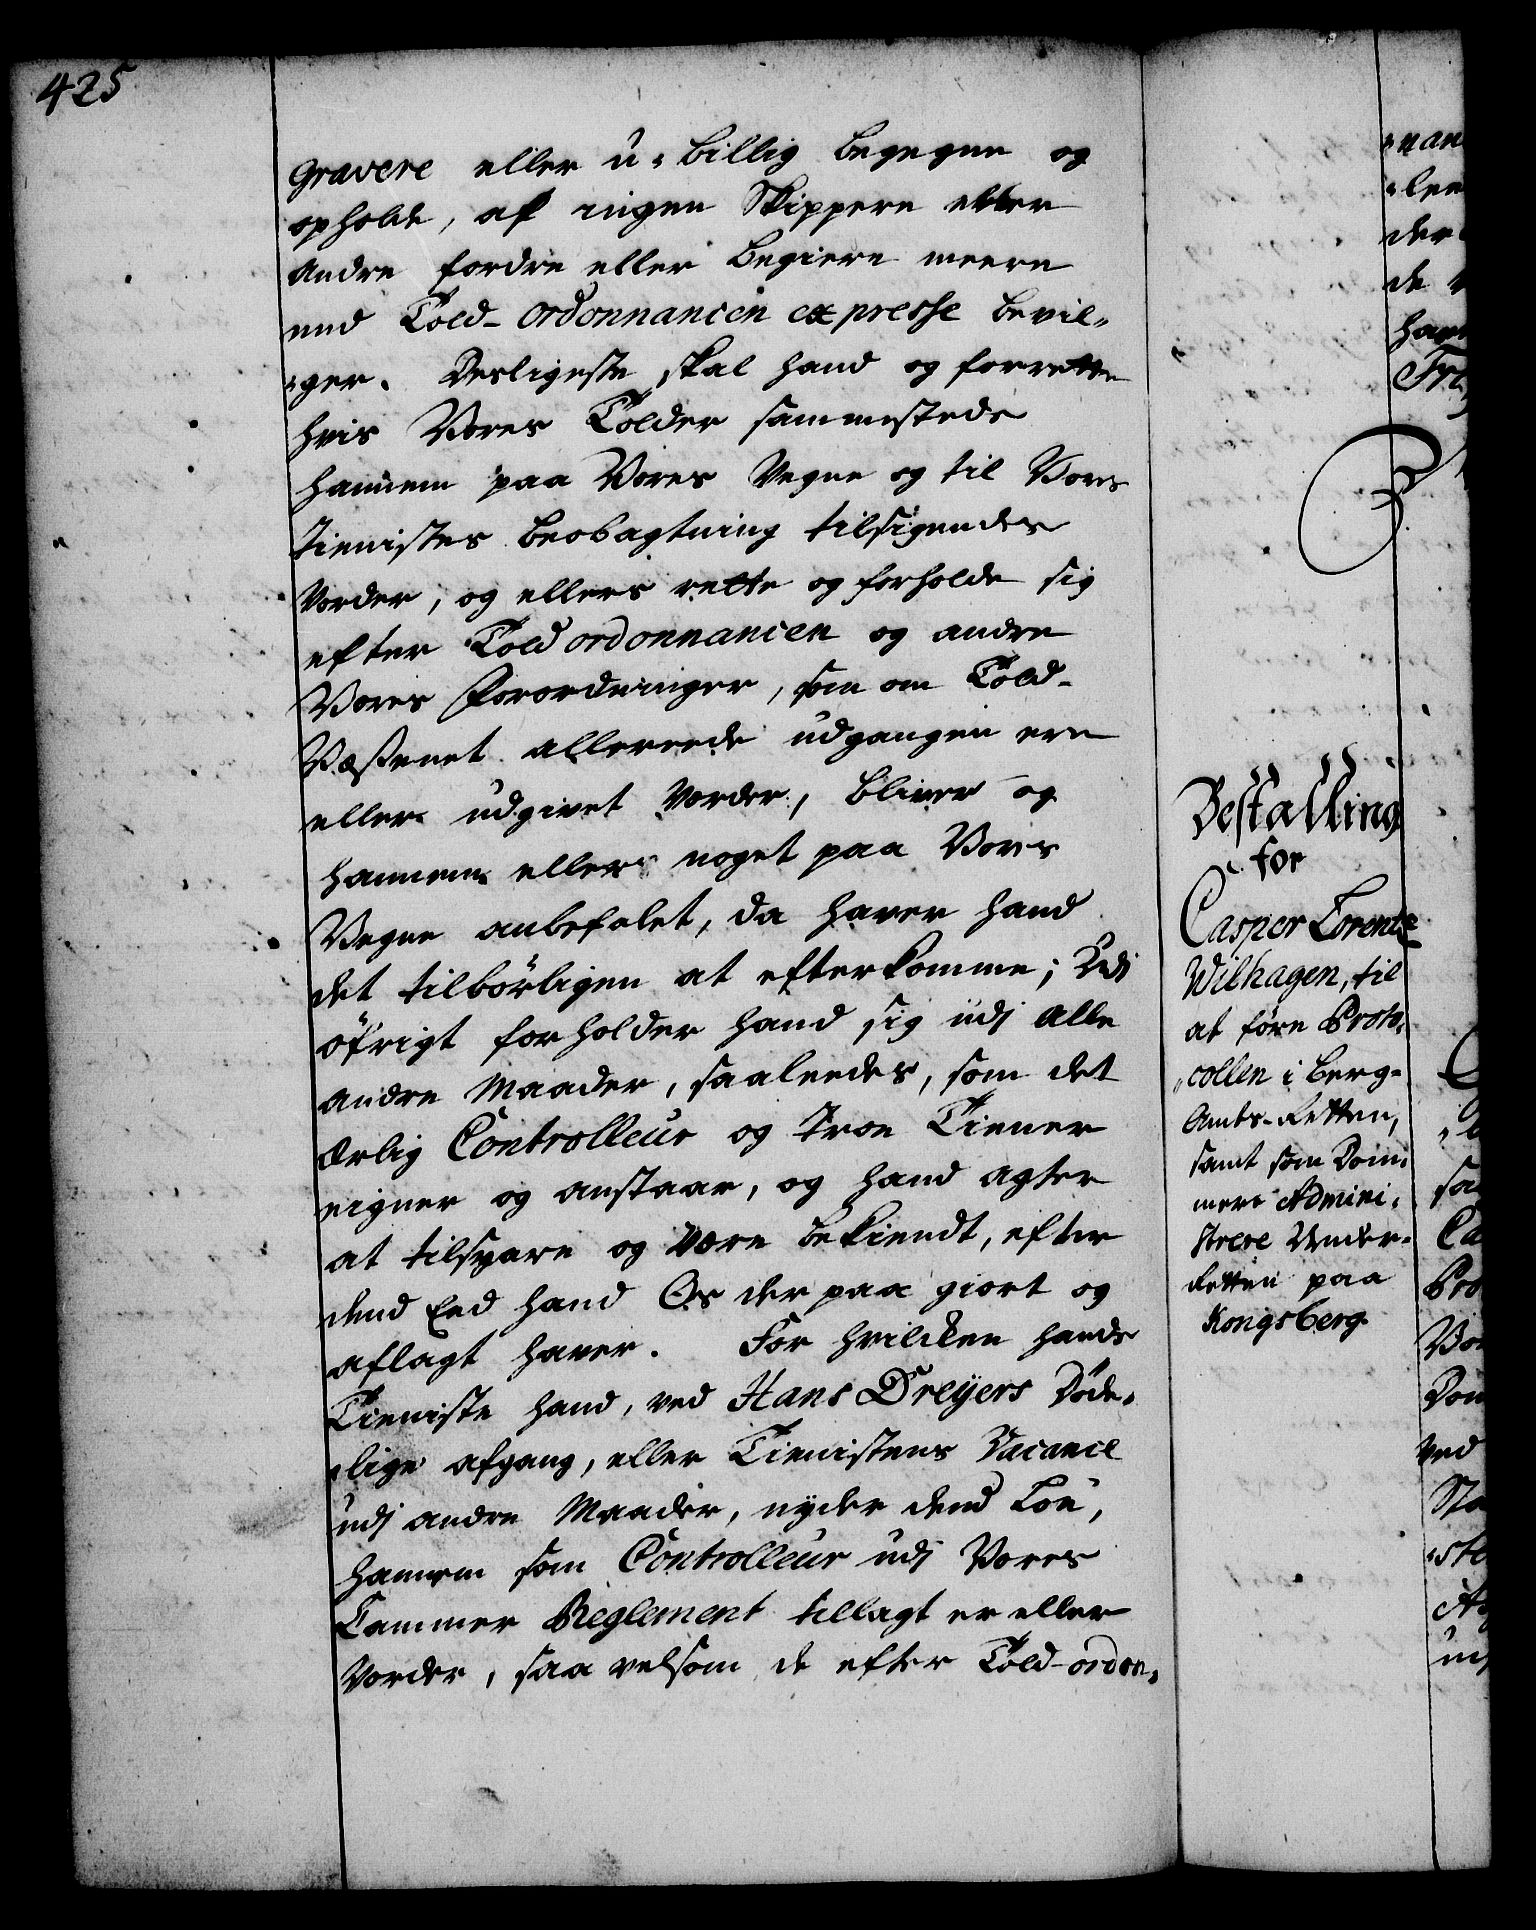 425
gravere eller u-billig begegne og
opholde, af ingen Skippere eller
andre fordre eller begiere meere
end Told-ordonnancen expresse bevil-
-ger. Desligeste skal hand og forrette
hvis Vores Tolder sammesteds
hannem paa Vores Vegne og til Vores
tienistes beobagtning tilsigendes
vorder, og ellers rette og forholde sig
efter Told ordonnancen og andre
Vores Forordninger, som om Told-
Væsenet allereede udgangen ere
eller udgivet vorder, bliver og
hannem ellers noget paa Vores
Vegne anbefalet, da haver hand
det tilbørligen at efterkomme; Udj
øfrigt forholder hand sig udj alle
andre Maader, saaleedes, som det
ærlig Controlleur og troe Tiener
eigner og anstaar, og hand agter
at tilsvare og være bekiendt, efter
dend Eed hand Os derpaa giort og
aflagt haver. For hvilcken hands
Tieniste hand, ved Hans Dreÿers Døde-
-lige afgang, eller Tienistens Vacance
udj andre Maader, nyder dend Løn,
hannem som Controlleur udj Vores
Cammer Reglement tillagt er eller
vorder, saa velsom de efter Told-ordon-
Bestalling
for
Casper Lorentz
Wilhagen, til
at føre Proto-
-collen i Berg-
Amts-Retten,
samt som Dom-
mere Admini-
strere Under-
Retten paa
Kongsberg.